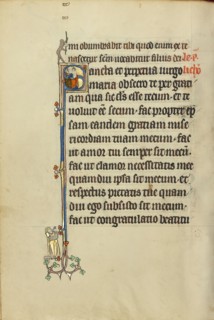 mi obumbrabit tibi quod enim ex te
nascetur sctm uocabitur filius dei
Sancta et perpetua uirgo
maria obsecro te per grati
am qua sic est esse tecum et te
uoluit esse secum. fac propter ip
sam eandem gratiam mise
ricordiam tuam mecum. fac
ut amor tui semper sit mecum.
fac ut clamor necessitatis me
quamdiu ipsa sit mecum. et
respectus pietatis tue quam
diu ego subsisto sit mecum.
fac ut congratulatio beatitu